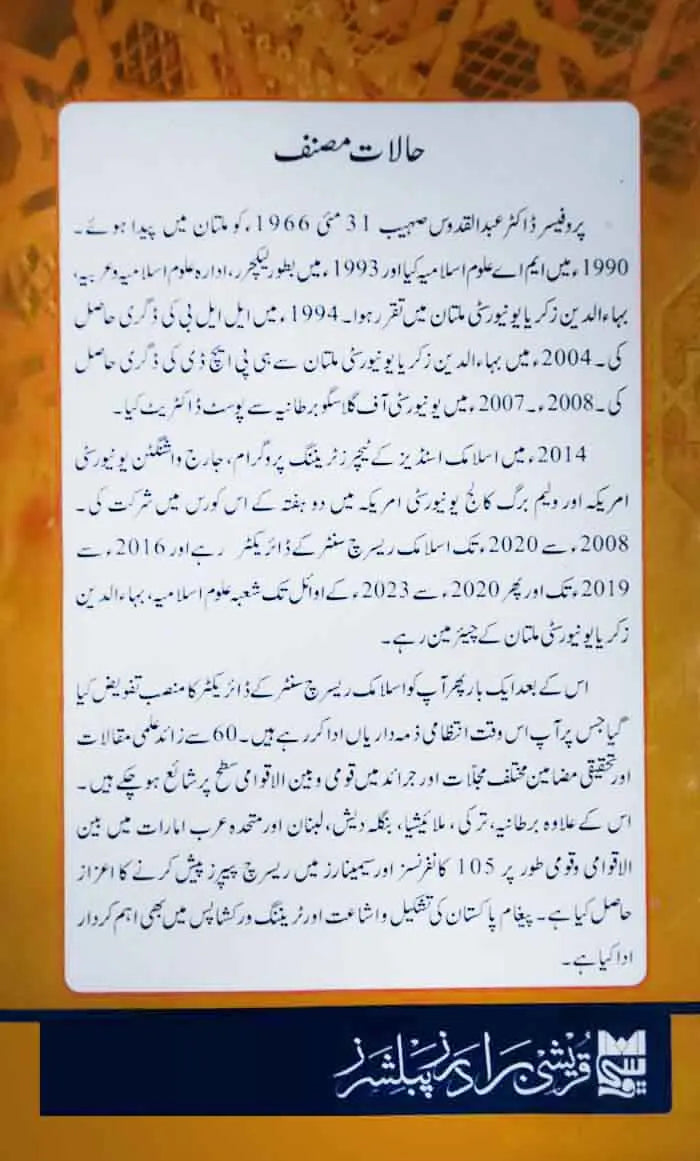 حالات مصنف
پروفیسر ڈاکٹر عبدالقدوس صہیب 31 مئی 1966ء کو ملتان میں پیدا ہوئے۔
1990ء میں ایم اے علوم اسلامیہ کیا اور 1993ء میں بطور لیکچرر، ادارہ علوم اسلامیہ و عربیہ،
بہاء الدین زکریا یونیورسٹی ملتان میں تقرر ہوا۔ 1994ء میں ایل ایل بی کی ڈگری حاصل
کی۔ 2004ء میں بہاء الدین زکریا یونیورسٹی ملتان سے ہی پی ایچ ڈی کی ڈگری حاصل
کی۔ 2008ء۔ 2007ء میں یونیورسٹی آف گلاسگو برطانیہ سے پوسٹ ڈاکٹریٹ کیا۔
2014ء میں اسلامک اسٹڈیز کے ٹیچرز ٹریننگ پروگرام، جارج واشنگٹن یونیورسٹی
امریکہ اور ولیم برگ کالج یونیورسٹی امریکہ میں دو ہفتہ کے اس کورس میں شرکت کی۔
2008ء سے 2020ء تک اسلامک ریسرچ سنٹر کے ڈائریکٹر رہے اور 2016ء سے
2019ء تک اور پھر 2020ء سے 2023ء کے اوائل تک شعبہ علوم اسلامیہ، بہاء الدین
زکریا یونیورسٹی ملتان کے چیئرمین رہے۔
اس کے بعد ایک بار پھر آپ کو اسلامک ریسرچ سنٹر کے ڈائریکٹر کا منصب تفویض کیا
گیا جس پر آپ اس وقت انتظامی ذمہ داریاں ادا کر رہے ہیں۔ 60 سے زائد علمی مقالات
اور تحقیقی مضامین مختلف مجلّات اور جرائد میں قومی و بین الاقوامی سطح پر شائع ہو چکے ہیں۔
اس کے علاوہ برطانیہ، ترکی، ملائیشیا، بنگلہ دیش، لبنان اور متحدہ عرب امارات میں بین
الاقوامی وقومی طور پر 105 کانفرنسز اور سیمینارز میں ریسرچ پیپرز پیش کرنے کا اعزاز
حاصل کیا ہے۔ پیغام پاکستان کی تشکیل و اشاعت اور ٹریننگ ورکشاپس میں بھی اہم کردار
ادا کیا ہے۔
قریشی برادرز پبلشرز